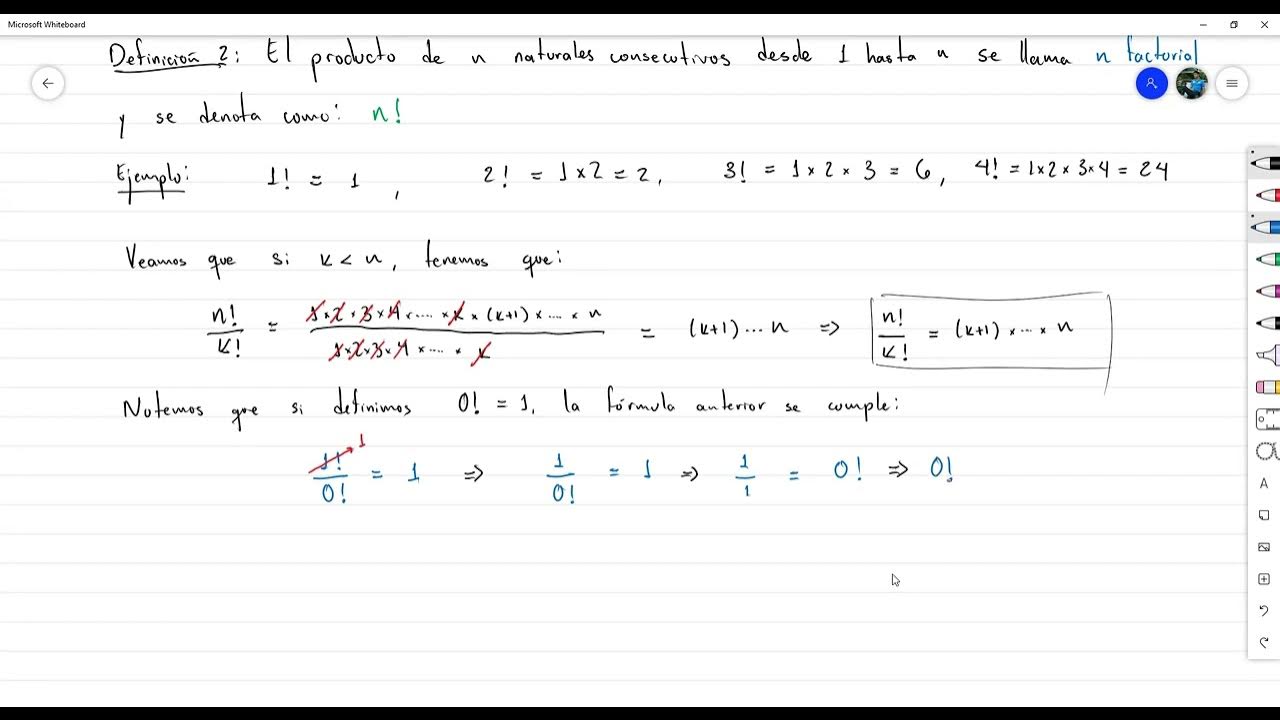 Microsoft Whiteboard
Definición 2: El producto de n naturales consecutivos desde 1 hasta n se llama n factorial
y se denota como: n!
Ejemplo: 1! = 1, 2! = 1×2 = 2, 3! = 1×2×3 = 6, 4! = 1×2×3×4 = 24
Veamos que si k < n, tenemos que:
n!/k! = 1×2×3×4×....×k×(k+1)×...×n / 1×2×3×4×....×k = (k+1)...n => n!/k! = (k+1)×...×n
Notemos que si definimos 0! = 1, la fórmula anterior se cumple:
1!/0! = 1 => 1/0! = 1 => 1/1 = 0! => 0!
1
A